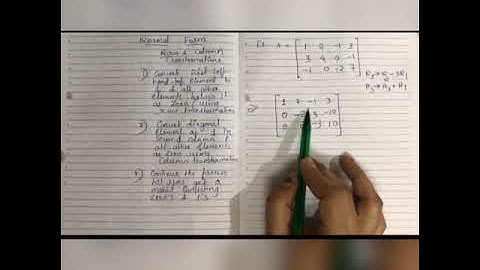 Normal Form
Row & Column
Transformations
1) Convert first left
hand top element to
1 & all other
elements below it
as zero (using
row transformation)
2) Convert diagonal
element as 1 in
second column &
all other elements
as zero using
column transformation
3) Continue the process
till you get a
matrix consisting
zero's & 1's
Ex A = 1 2 -1 3
3 4 0 -1
-1 0 -2 7
R2→R2-3R1
R3→R3+R1
1 2 -1 3
0 3 -10
0 -3 10